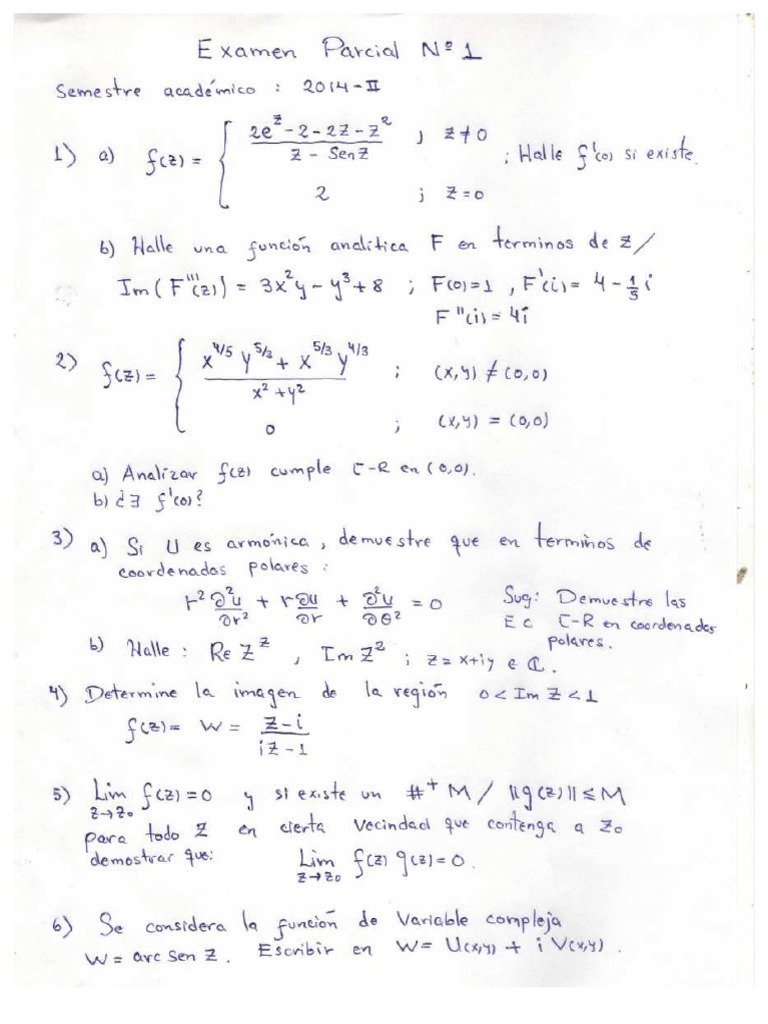 Examen Parcial Nº 1
Semestre académico : 2014-II
1) a) f(z) = { (2e^z - 2 - 2z - z^2) / (z - Sen z) ; z≠0 ; Halle f'(0) si existe.
2 ; z=0
b) Halle una función analítica F en terminos de z /
Im(F'''(z)) = 3x^2y - y^3 + 8 ; F(0)=1 , F'(i) = 4 - 1/5 i
F''(i) = 4i
2) f(z) = { (x^4/5 y^5/3 + x^5/3 y^4/3) / (x^2 + y^2) ; (x,y) ≠ (0,0)
0 ; (x,y) = (0,0)
a) Analizar f(z) cumple C-R en (0,0).
b) ¿∃ f'(0)?
3) a) Si U es armónica, demuestre que en terminos de
coordenadas polares :
r^2 ∂^2u/∂r^2 + r ∂u/∂r + ∂^2u/∂θ^2 = 0
Sug: Demuestre las
Ec C-R en coordenadas
polares.
b) Halle : Re Z^z , Im Z^2 ; z = x+iy ∈ ℂ.
4) Determine la imagen de la región 0 < Im Z < 1
f(z) = W = (z-i) / (iz-1)
5) Lim z→z0 f(z) = 0 y si existe un #+ M / ||g(z)|| ≤ M
para todo Z en cierta vecindad que contenga a Z0
demostrar que: Lim z→z0 f(z) g(z) = 0.
6) Se considera la función de Variable compleja
W = arc Sen Z. Escribir en W = U(x,y) + i V(x,y).